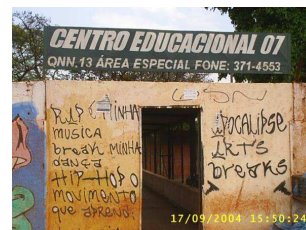 CENTRO EDUCACIONAL 07
QNN.13 ÁREA ESPECIAL FONE: 371-4553
MINHA
MUSICA
break MINHA
dança
HIP-HOP O
MOVIMENTO
que aprend
APOCALIPSE
breaks
17/09/2004 15:50:24